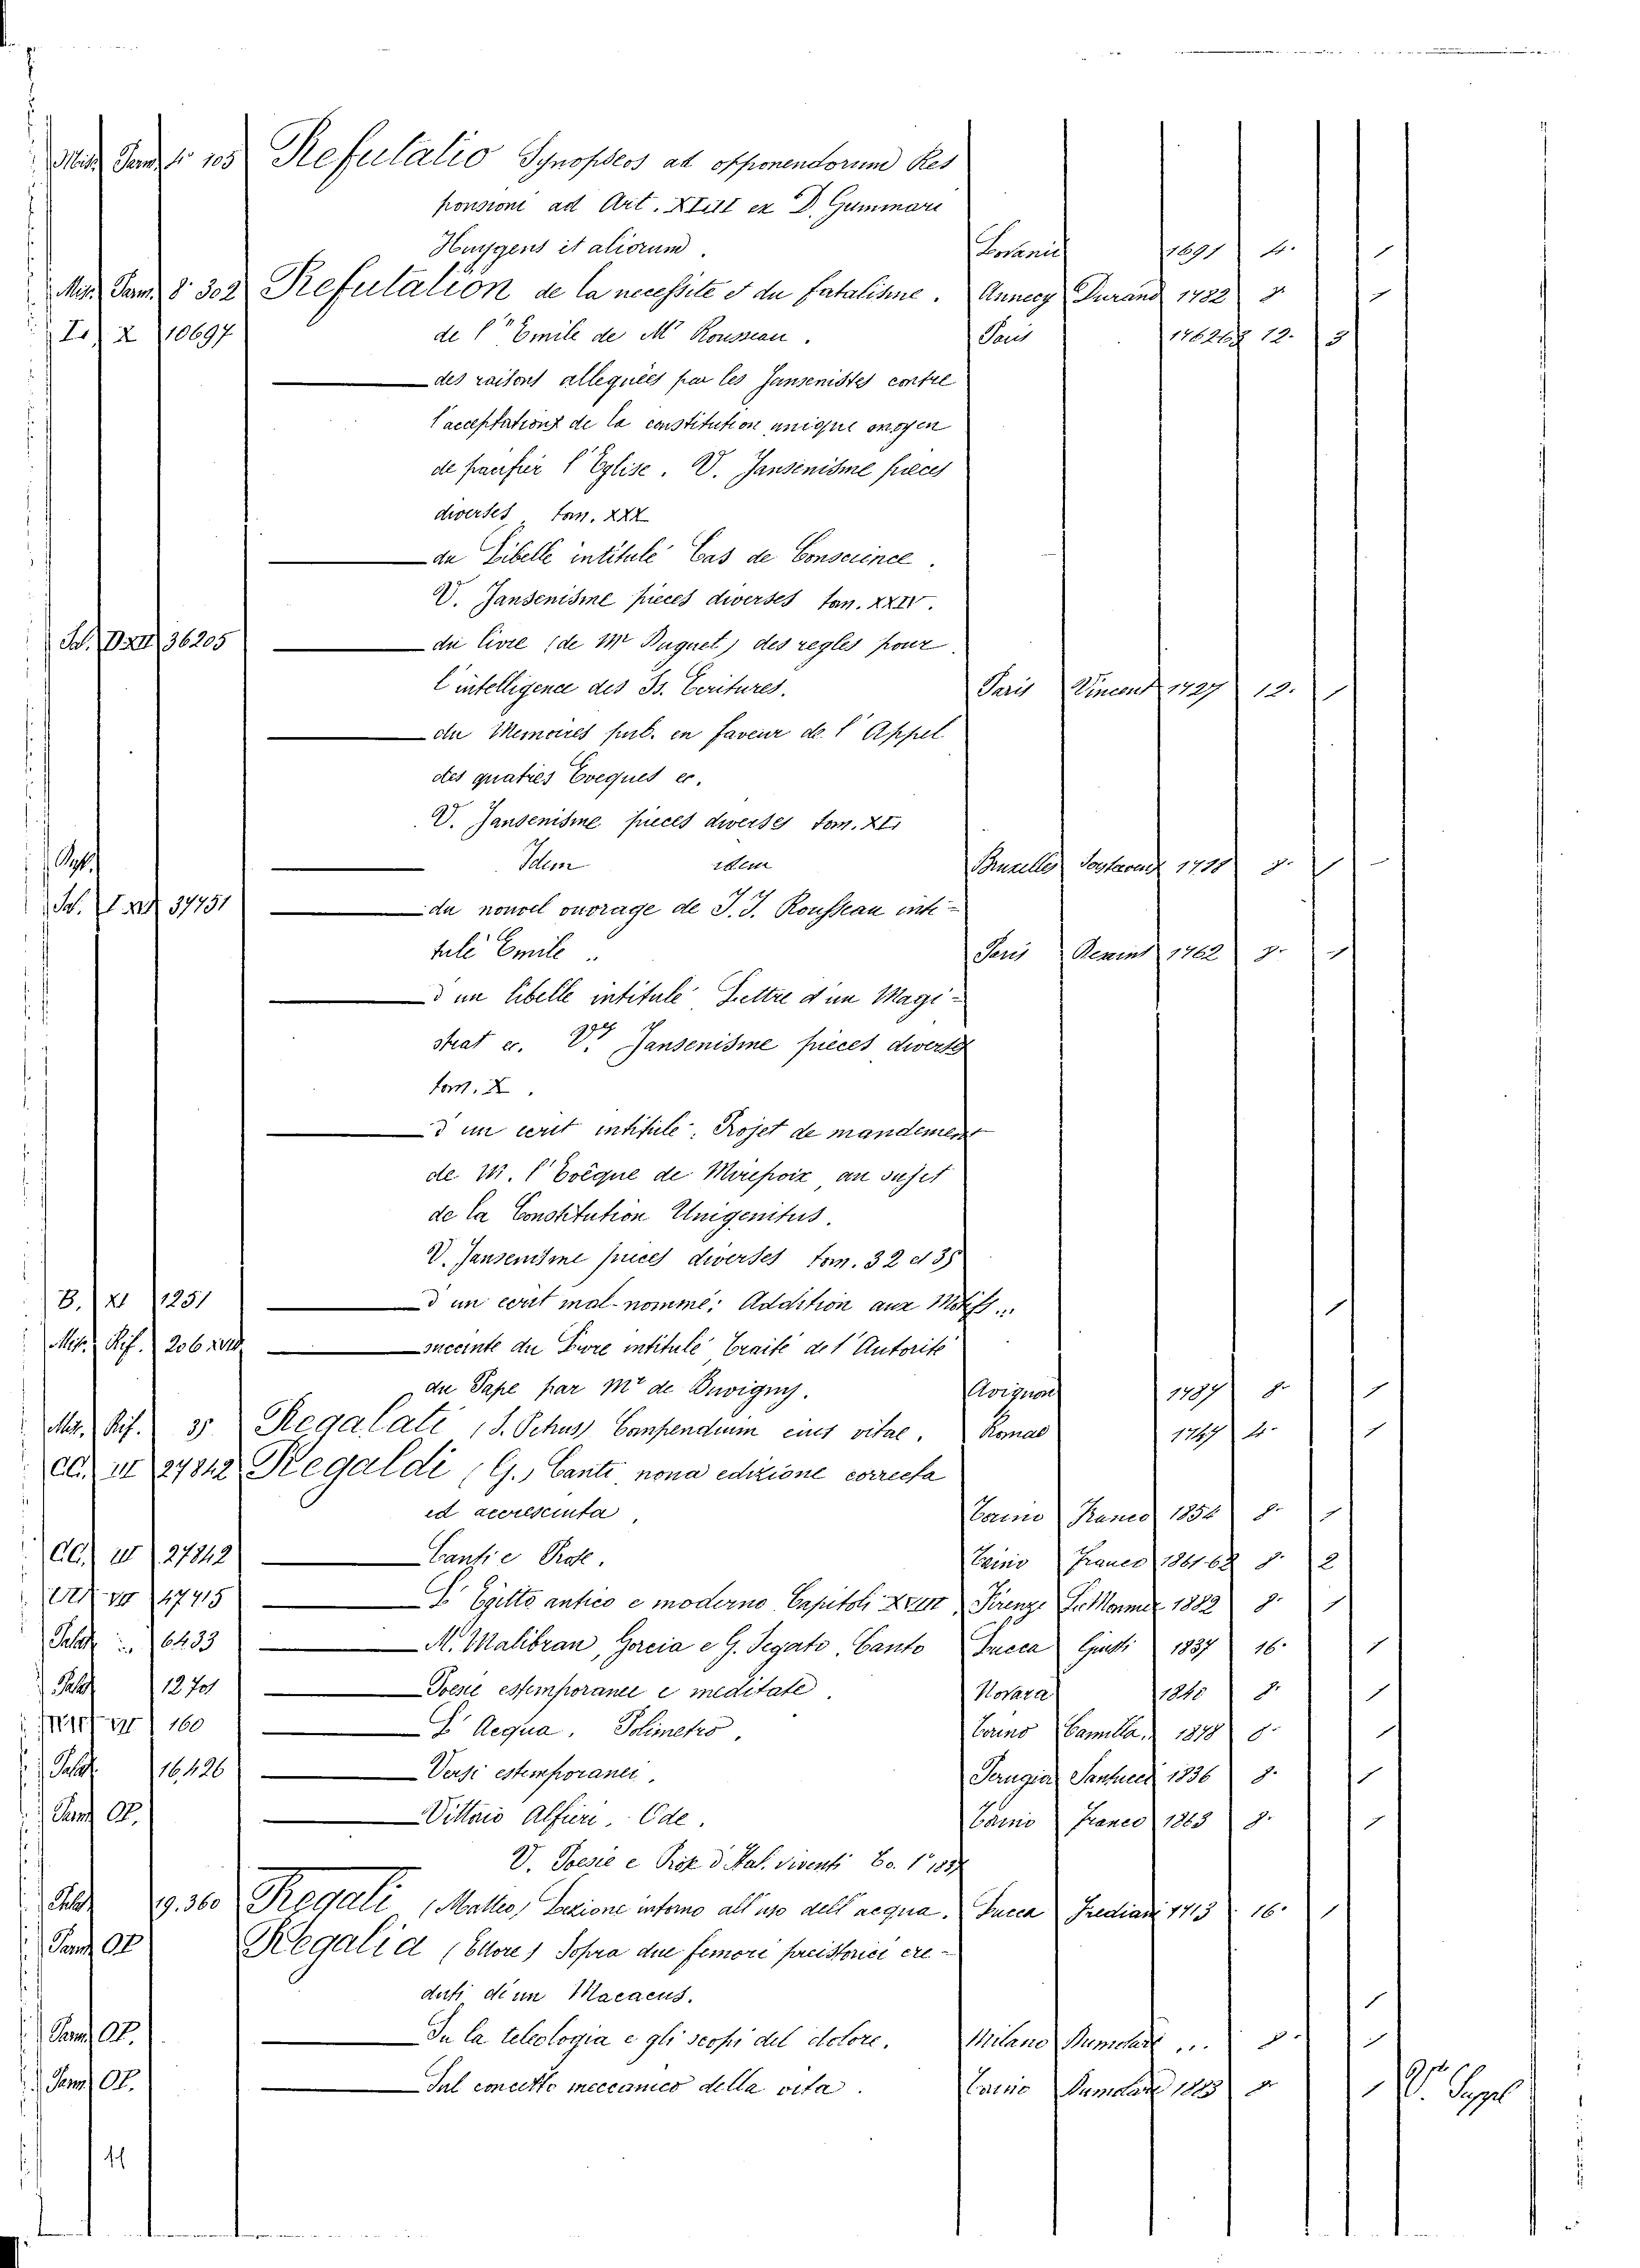 Misc. Pam. 4° 105 Refutatio Synopseos ad opponendorum Res
ponsioni ad Art. XVIII ex D. Gummari
Huygens et aliorum. Lovanii 1691 4. 1
Mis. Pam. 8. 302 Refutation de la necessité et du fatalisme. Annecy Durand 1782 8 1
I.) X 10697 de l'Emile de Mr Rousseau. Paris 12. 3
des raisons alleguées par les Jansenistes contre
l'acceptation de la constitution unique moyen
de pacifier l'Eglise. V. Jansenisme pieces
diverses, tom. XXX
du Libelle intitulé Cas de Conscience.
V. Jansenisme pieces diverses tom. XXIV.
36205 du livre (de Mr Duguet) des regles pour
l'intelligence des Ss. Ecritures. Paris Vincent 1727 12. 1
du Memoires pub. en faveur de l'Appel
des quatres Eveques ec.
V. Jansenisme pieces diverses tom. XI.
Idem idem Bruxelles 8. 1
37751 du nouvel ouvrage de J. J. Rousseau inti-
tulé Emile .. Paris 1762 8. 1
d'un libelle intitulé Lettre d'un Magi-
strat ec. V. Jansenisme pièces diverses
tom. X.
d'un ecrit intitulé, Projet de mandement
de M. l'Evêque de Mirepoix, au sujet
de la Constitution Unigenitus.
V. Jansenisme pieces diverses tom. 32 et 35
B. XI 1251 d'un ecrit mal-nommé; Addition aux Motifs... 1
Misc. Rif. 206 XVIII succinte du Livre intitulé Traité de l'Autorité
du Pape par Mr de Buvigny. Avignon 1787 8. 1
Misc. Rif. 35 Regalati (S. Petrus) Conpendium eius vitae. Romae 1747 4. 1
CC. III 27842 Regaldi (G.) Canti, nona edizione corretta
ed accresciuta, Torino Franco 1854 8. 1
CC. III 27842 Canti e Prose. Torino Franco 1861-62 8. 2
47415 L'Egitto antico e moderno Capitoli XVIII, Firenze Le Monnier 1882 8. 1
Palat. 6433 M. Malibran, Garcia e G. Segato, Canto Lucca Giusti 1837 16. 1
Palat. 12701 Poesie estemporanee e meditate. Novara 1840 8. 1
160 L'Acqua, Polimetro. Torino Camilla. 1878 8. 1
Palat. 16,426 Versi estemporanei. Perugia Santucci 1836 8. 1
Pam. OP. Vittorio Alfieri. Ode. Torino Franco 1863 8. 1
V. Poesie e Pros. d'Ital. viventi Bo. 1° 1837
Palat. 19.360 Regali (Matteo) Lezione intorno all'uso dell'acqua. Lucca Frediani 1713 16. 1
Pam. OP Regalia (Ettore) Sopra due femori preistorici cre-
duti di un Macacus. 1
Pam. OP. Su la teleologia e gli scopi del dolore. Milano Dumolard ... 8. 1
Pam. OP. Sul concetto meccanico della vita. Torino Dumolard 1883 8 1 V. Suppl